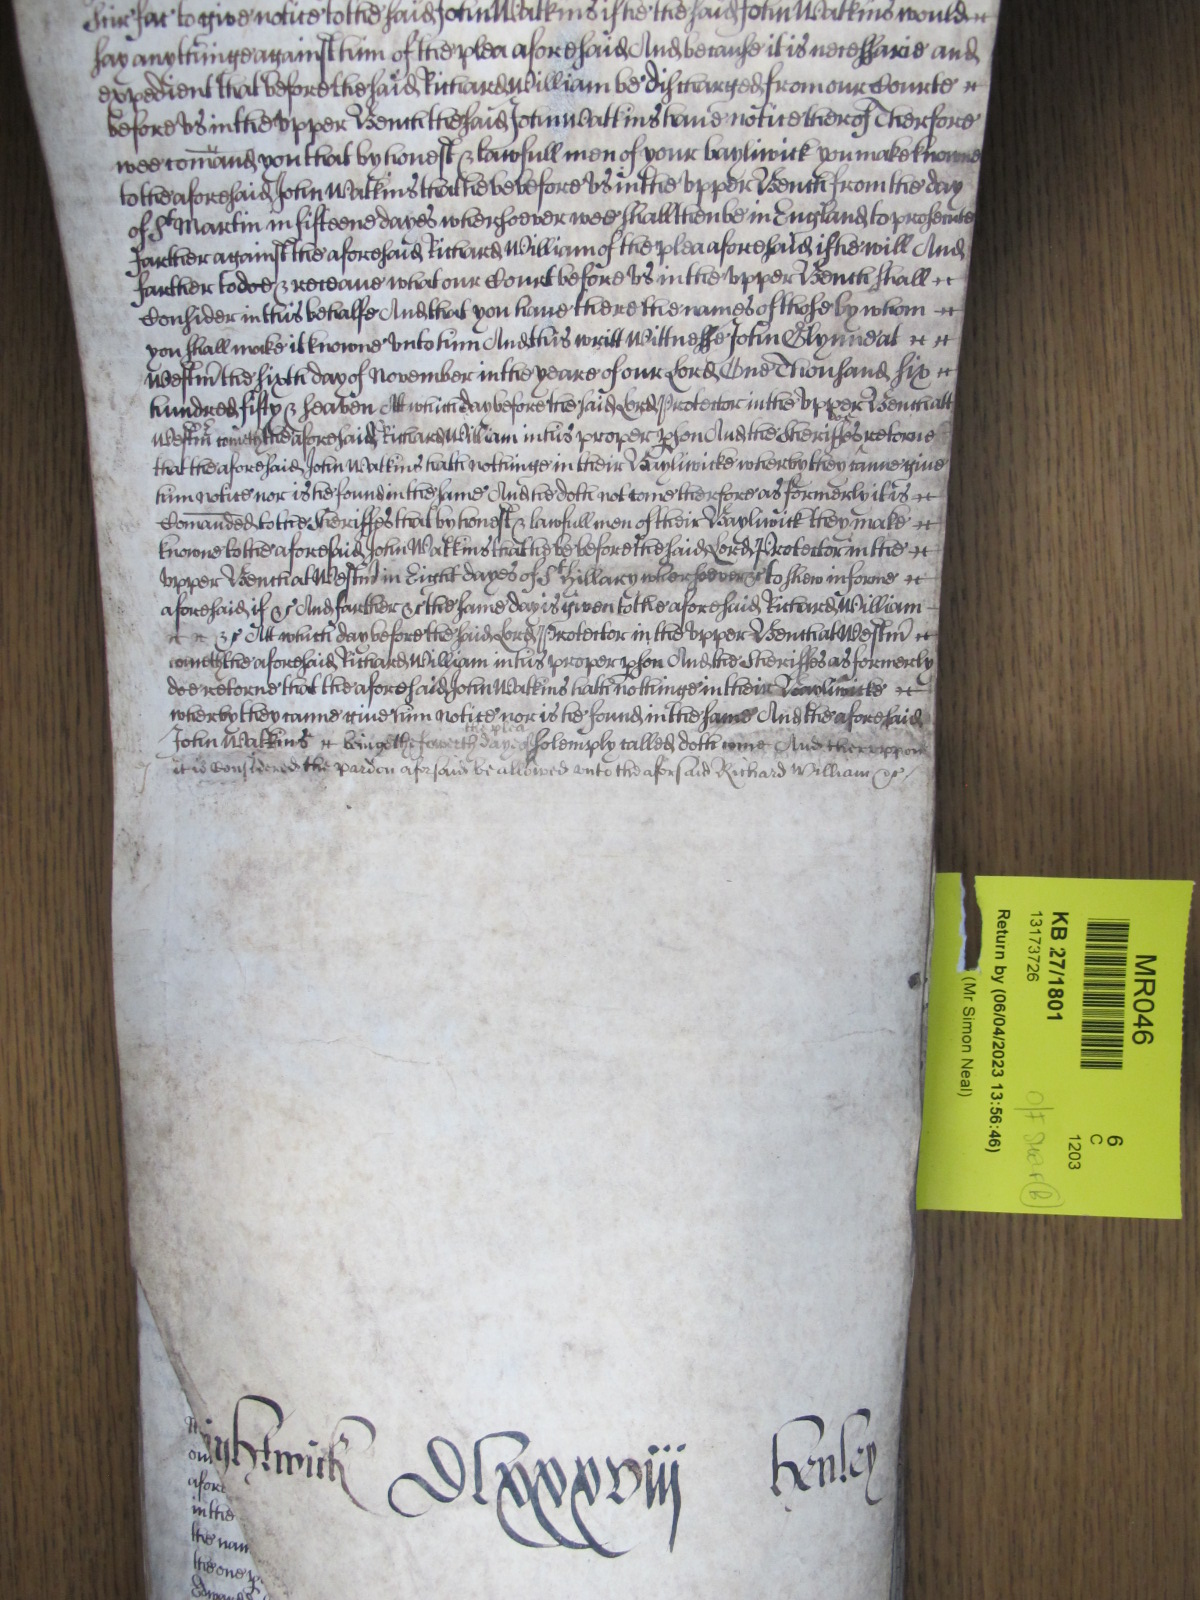 Scir fac to give notice to the said John Watkins if he the said John Watkins would
say any thinge against him of the plea aforesaid And because it is necessarie and
expedient that before the said Richard William be discharged from our Courte
before us in the upper Bench the said John Watkins have notice therof Therfore
wee comaund you that by honest & lawfull men of your bayliwick you make knowne
to the aforesaid John Watkins that he be before us in the upper Bench from the day
of St Martin in fifteene dayes whersoever wee shall then be in England to prosecute
farther against the aforesaid Richard William of the plea aforesaid if he will And
farther to doe & receave what our Court before us in the upper Bench shall
Consider in this behalfe And that you have there the names of those by whom
you shall make it knowne unto him And this writt Wittnesse John Glynne at
Westm the sixth day of November in the yeare of our Lord One Thousand six
hundred fifty & seaven Att which day before the said Lord Protector in the upper Bench att
Westm cometh the aforesaid Richard William in his proper pson And the Sheriffes retorne
that the aforesaid John Watkins hath nothinge in their Bayliwicke wherby they canne give
him notice nor is he found in the same And he doth not come therfore as formerly it is
Comanded to the Sheriffes that by honest & lawfull men of their Bayliwick they make
knowne to the aforesaid John Watkins that he be before the said Lord Protector in the
upper Bench at Westm in Eight dayes of St Hillary whersoever &c to shew in forme
aforesaid if &c And farther &c the same day is given to the aforesaid Richard William
&c Att which day before the said Lord Protector in the upper Bench at Westm
cometh the aforesaid Richard William in his proper pson And the Sheriffes as formerly
doe retorne that the aforesaid John Watkins hath nothinge in their Bayliwicke
wherby they canne give him notice nor is he found in the same And the aforesaid
the plea
John Watkins beinge the fowerth daye of solemply called doth come And therruppon
it is Considered the pardon aforsaid be allowed unto the aforsaid Richard William &c
Wightwick DLxxxviii Henley
afore
in the
the nam
the one
Edward
MR046
KB 27/1801
13173726
Return by (06/04/2023 13:56:46)
(Mr Simon Neal)
6
C
1203